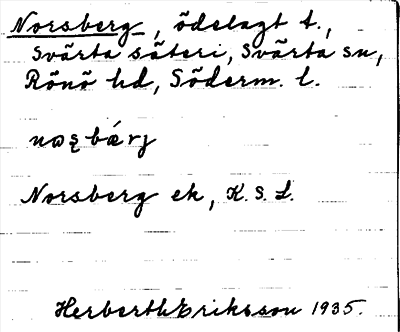 Norsberg, ödelagt t.,
Svärta säteri, Svärta sn,
Rönö hd, Söderm. l.
noʂbærj
Norsberg ek, K. S. L.
Herbert Eriksson 1935.